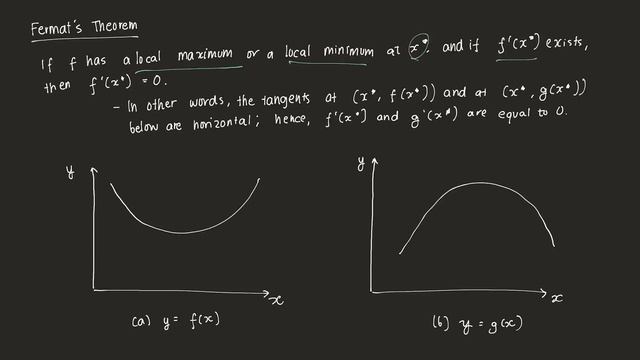 Fermat's Theorem
If f has a local maximum or a local minimum at x*, and if f'(x*) exists,
then f'(x*) = 0.
- In other words, the tangents at (x*, f(x*)) and at (x*, g(x*))
below are horizontal; hence, f'(x*) and g'(x*) are equal to 0.
y
y
x
x
(a) y = f(x)
(b) y = g(x)